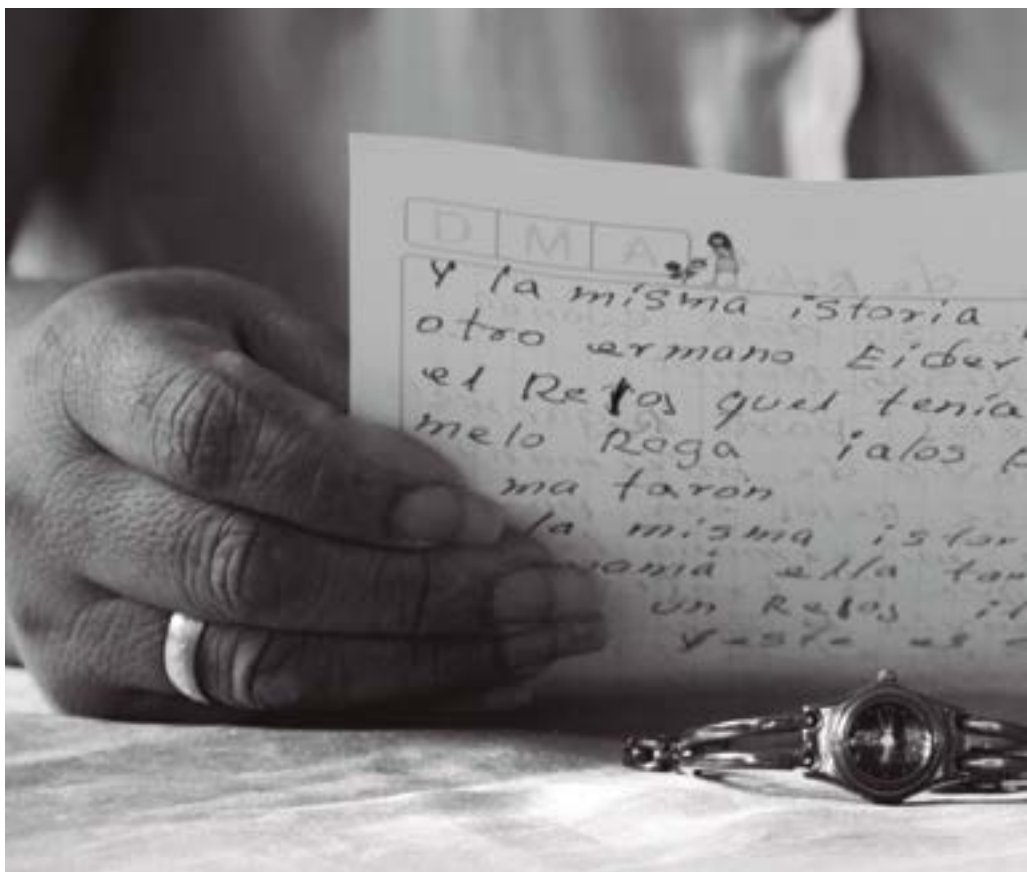 D M A
Y la misma istoria
otro ermano Eider
el Relos quel tenía
melo Roga ialos
ma tarón
la misma istor
mamá ella tam
un Relos
y este es